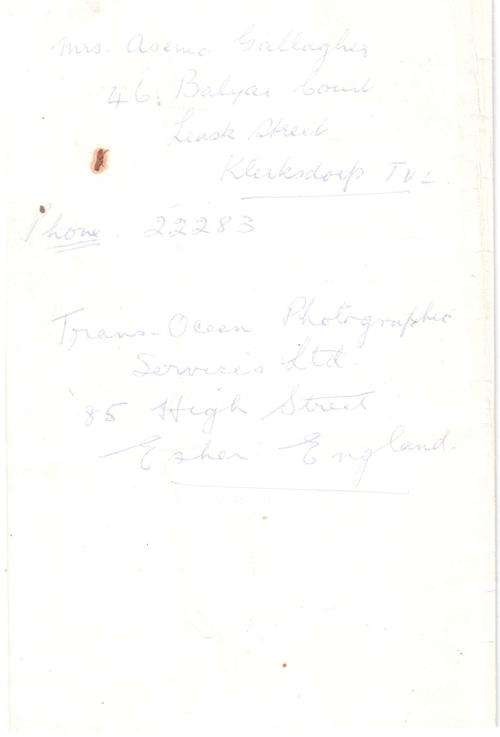 Mrs. Asema Gallagher
46. Balyar Court
Leask Street
Klerksdorp TVL
Phone. 22283
Trans-Ocean Photographic
Services Ltd.
85 High Street
Esher England.